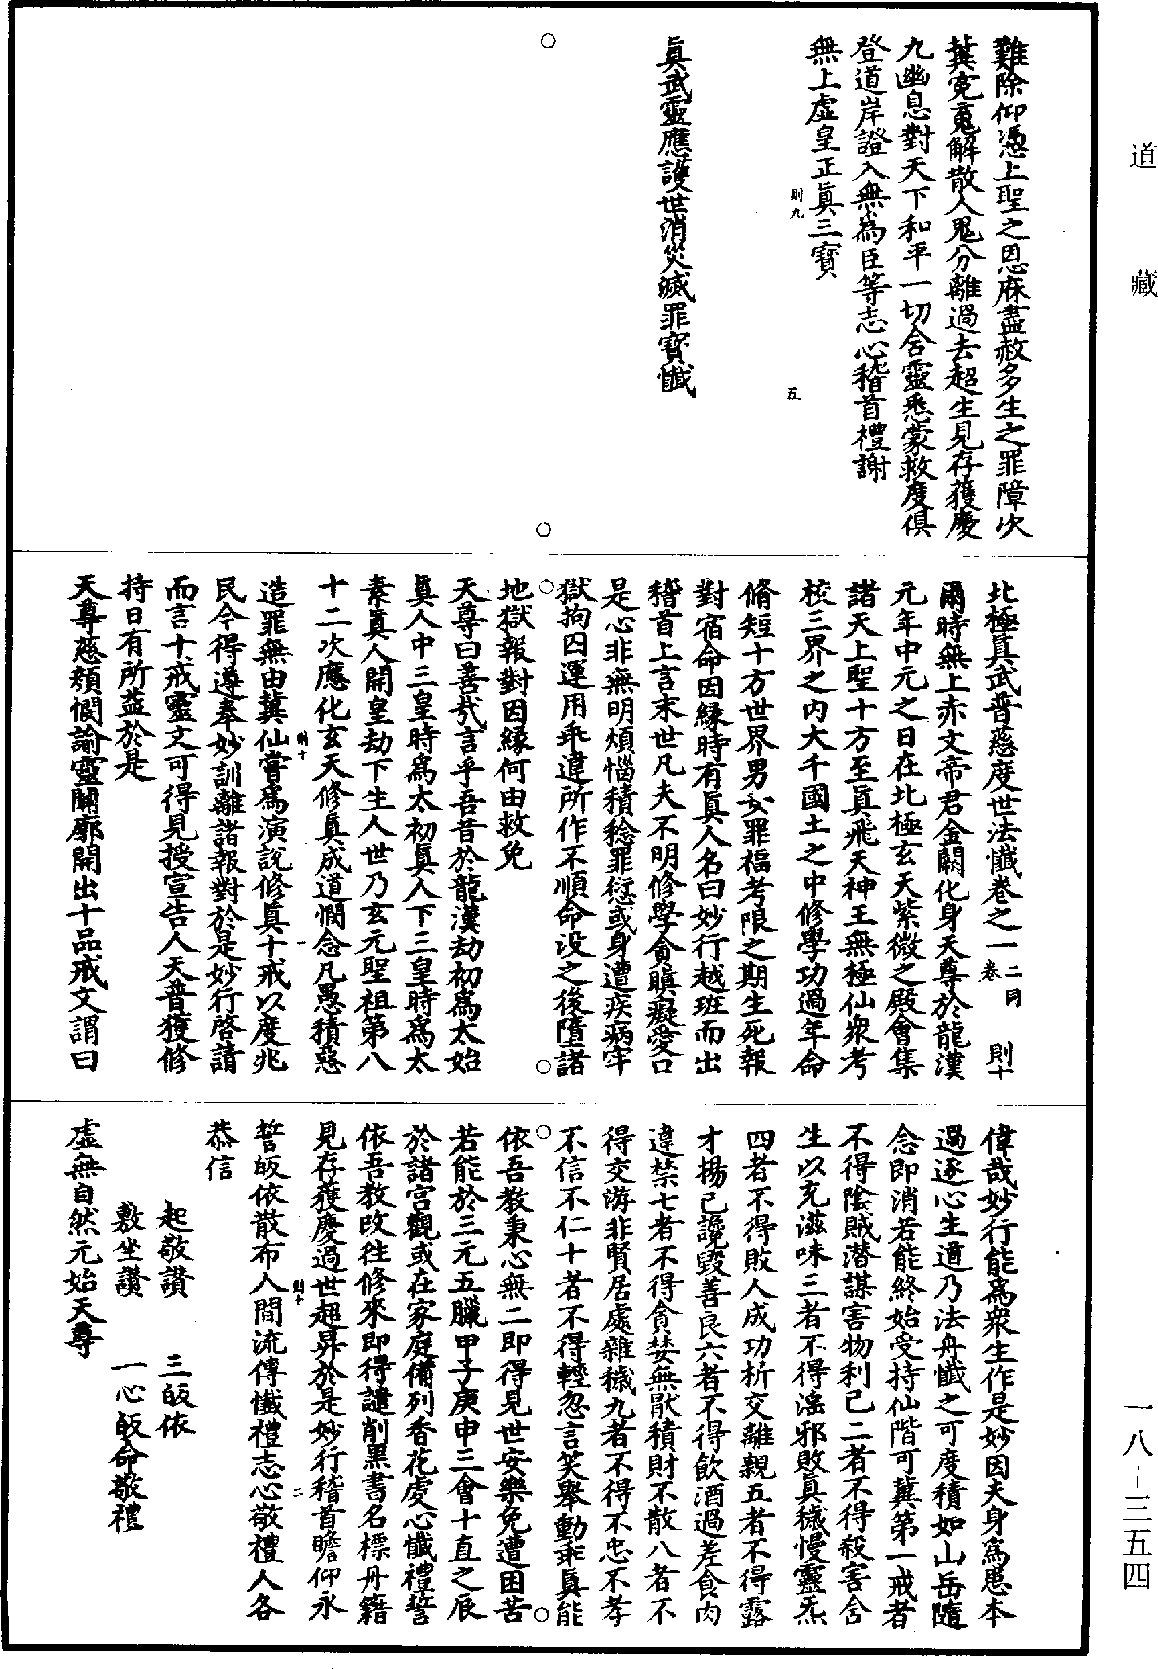 道藏
難除仰憑上聖之恩庥盡赦多生之罪障次
冀寃䰟解散人鬼分離過去超生見存獲慶
九幽息對天下和平一切含靈悉蒙救度俱
登道岸證入無爲臣等志心稽首禮謝
無上虛皇正眞三寶
則九
五
眞武靈應護世消災滅罪寶懺
北極眞武普慈度世法懺卷之一 二同卷 則十
爾時無上赤文帝君金闕化身天尊於龍漢
元年中元之日在北極玄天紫微之殿會集
諸天上聖十方至眞飛天神王無極仙衆考
校三界之內大千國土之中修學功過年命
脩短十方世界男女罪福考限之期生死報
對宿命因緣時有眞人名曰妙行越班而出
稽首上言末世凡夫不明修學貪瞋癡愛口
是心非無明煩惱積稔罪愆或身遭疾病牢
獄拘囚運用乖違所作不順命没之後墮諸
地獄報對因緣何由救免
天尊曰善哉言乎吾昔於龍漢劫初爲太始
眞人中三皇時爲太初眞人下三皇時爲太
素眞人開皇劫下生人世乃玄元聖祖第八
十二次應化玄天修眞成道憫念凡愚積惡
則十
一
造罪無由冀仙嘗爲演說修眞十戒以度兆
民令得遵奉妙訓離諸報對於是妙行啓請
而言十戒靈文可得見授宣告人天普獲修
持日有所益於是
天尊慈顏憫諭靈關廓開出十品戒文謂曰
偉哉妙行能爲衆生作是妙因夫身爲患本
過逐心生道乃法舟懺之可度積如山岳隨
念即消若能終始受持仙階可冀第一戒者
不得陰賊潛謀害物利己二者不得殺害含
生以充滋味三者不得淫邪敗真穢慢靈炁
四者不得敗人成功析交離親五者不得露
才揚己讒毀善良六者不得飲酒過差食肉
違禁七者不得貪婪無猒積財不散八者不
得交游非賢居處雜穢九者不得不忠不孝
不信不仁十者不得輕忽言笑舉動乖真能
依吾教秉心無二即得見世安樂免遭困苦
若能於三元五臘甲子庚申三會十直之辰
於諸宮觀或在家庭備列香花虔心懺禮誓
依吾教改往修來即得譴削黑書名標丹籍
見存獲慶過世超昇於是妙行稽首瞻仰永
則十
二
誓皈依散布人間流傳懺禮志心敬禮人各
恭信
起敬讚 三皈依
敷坐讚 一心皈命敬禮
虛無自然元始天尊
一八-三五四